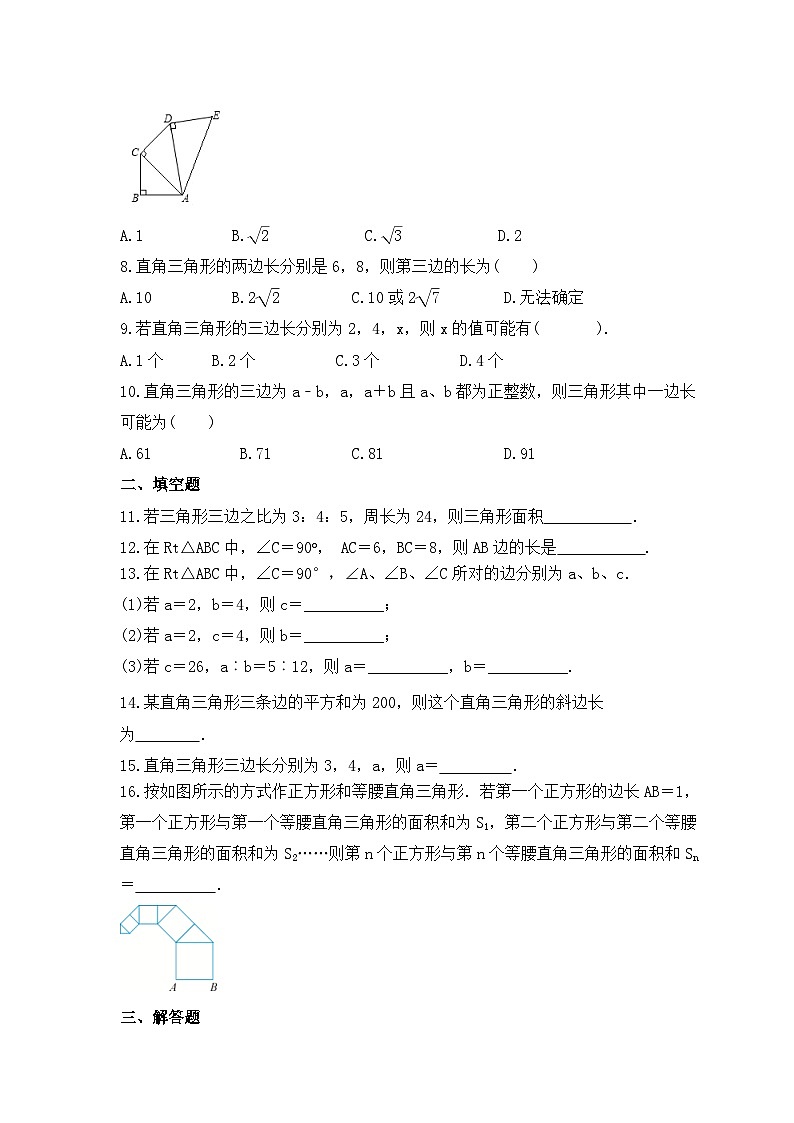 D
E
C
B
A
A.1 B.√2 C.√3 D.2
8.直角三角形的两边长分别是6，8，则第三边的长为( )
A.10 B.2√2 C.10或2√7 D.无法确定
9.若直角三角形的三边长分别为2，4，x，则x的值可能有( ).
A.1个 B.2个 C.3个 D.4个
10.直角三角形的三边为a﹣b，a，a＋b且a、b都为正整数，则三角形其中一边长
可能为( )
A.61 B.71 C.81 D.91
二、填空题
11.若三角形三边之比为3：4：5，周长为24，则三角形面积___________.
12.在Rt△ABC中，∠C＝90º， AC＝6，BC＝8，则AB边的长是___________.
13.在Rt△ABC中，∠C＝90°，∠A、∠B、∠C所对的边分别为a、b、c.
(1)若a＝2，b＝4，则c＝__________；
(2)若a＝2，c＝4，则b＝__________；
(3)若c＝26，a∶b＝5∶12，则a＝__________，b＝__________.
14.某直角三角形三条边的平方和为200，则这个直角三角形的斜边长
为________.
15.直角三角形三边长分别为3，4，a，则a＝_________.
16.按如图所示的方式作正方形和等腰直角三角形．若第一个正方形的边长AB＝1，
第一个正方形与第一个等腰直角三角形的面积和为S₁，第二个正方形与第二个等腰
直角三角形的面积和为S₂……则第n个正方形与第n个等腰直角三角形的面积和Sₙ
＝__________.
A B
三、解答题